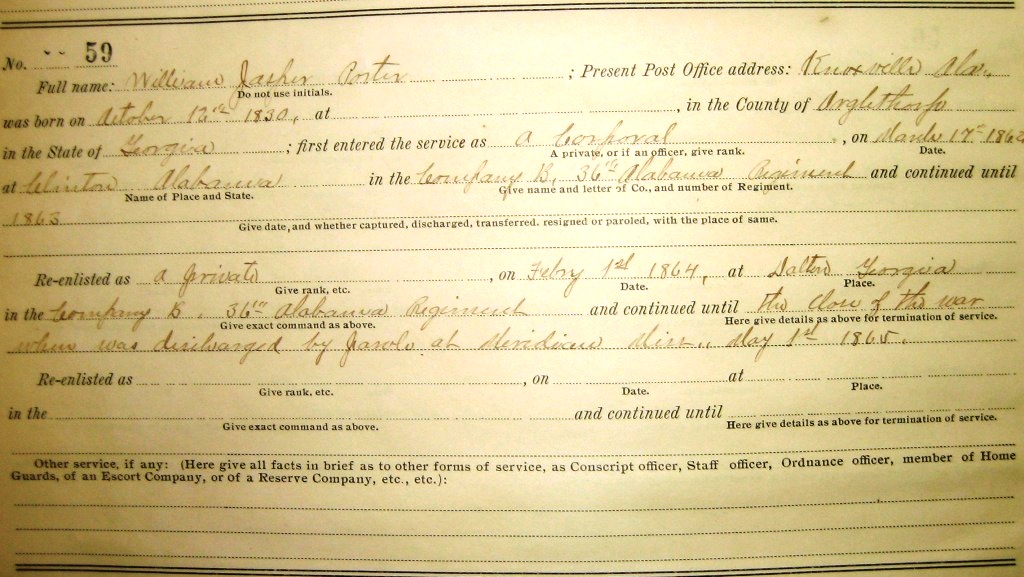 No. 59
Full name: William Jasher Porter ; Present Post Office address: Knoxville Ala.
Do not use initials.
was born on October 12th 1830, at , in the County of Orglethorp
in the State of Georgia ; first entered the service as a Corporal , on March 17th 1862
A private, or if an officer, give rank. Date.
at Clinton Alabama in the Company B, 36th Alabama Regiment and continued until
Name of Place and State. Give name and letter of Co., and number of Regiment.
1863
Give date, and whether captured, discharged, transferred. resigned or paroled, with the place of same.
Re-enlisted as a private , on Febry 1st 1864, at Dalton Georgia
Give rank, etc. Date. Place.
in the Company B, 36th Alabama Regiment and continued until the close of the war
Give exact command as above. Here give details as above for termination of service.
when was discharged by parole at Meridian Miss., May 1st 1865.
Re-enlisted as , on at
Give rank, etc. Date. Place.
in the and continued until
Give exact command as above. Here give details as above for termination of service.
Other service, if any: (Here give all facts in brief as to other forms of service, as Conscript officer, Staff officer, Ordnance officer, member of Home
Guards, of an Escort Company, or of a Reserve Company, etc., etc.):